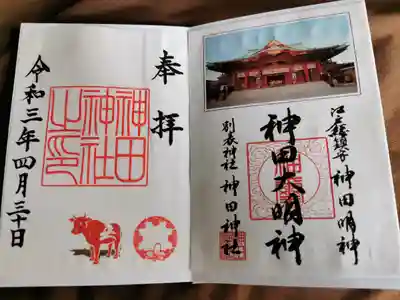 奉拝
神田
神社
之印
令和三年四月三十日
江戸総鎮守 神田明神
神田大明神
別表神社 神田神社